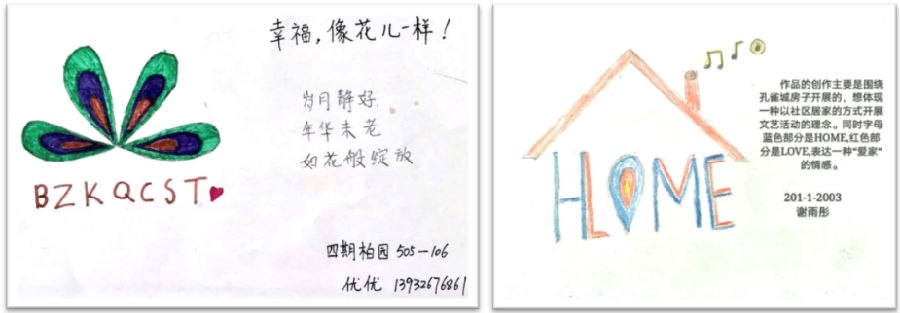 幸福,像花儿一样!
岁月静好
年华未老
如花般绽放
BZKQCST
四期柏园 505-106
优优 13932676861
HOME
作品的创作主要是围绕
孔雀城房子开展的,想体现
一种以社区居家的方式开展
文艺活动的理念。同时字母
蓝色部分是HOME,红色部
分是LOVE,表达一种“爱家”
的情感。
201-1-2003
谢雨彤